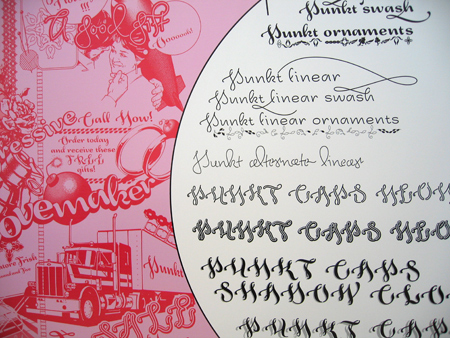 A good gif
Yoooooh!
Call Now!
Order today
and receive these
FREE
gifts!
lovemaker
Punkt
SALE
Punkt swash
Punkt ornaments
Punkt linear
Punkt linear swash
Punkt linear ornaments
Punkt alternate linear
PUNKT CAPS
PUNKT CAPS
PUNKT CAPS
SHADOW
PUNKT CAPS